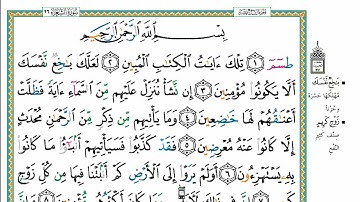 بِسْمِ ٱللَّهِ ٱلرَّحْمَٰنِ ٱلرَّحِيمِ
طسٓمٓ ١ تِلْكَ ءَايَٰتُ ٱلْكِتَٰبِ ٱلْمُبِينِ ٢ لَعَلَّكَ بَٰخِعٌ نَّفْسَكَ
أَلَّا يَكُونُوا۟ مُؤْمِنِينَ ٣ إِن نَّشَأْ نُنَزِّلْ عَلَيْهِم مِّنَ ٱلسَّمَآءِ ءَايَةً فَظَلَّتْ
أَعْنَٰقُهُمْ لَهَا خَٰضِعِينَ ٤ وَمَا يَأْتِيهِم مِّن ذِكْرٍ مِّنَ ٱلرَّحْمَٰنِ مُحْدَثٍ
إِلَّا كَانُوا۟ عَنْهُ مُعْرِضِينَ ٥ فَقَدْ كَذَّبُوا۟ فَسَيَأْتِيهِمْ أَنۢبَٰٓؤُا۟ مَا كَانُوا۟
بِهِۦ يَسْتَهْزِءُونَ ٦ أَوَلَمْ يَرَوْا۟ إِلَى ٱلْأَرْضِ كَمْ أَنۢبَتْنَا فِيهَا مِن كُلِّ زَوْجٍ
بَٰخِعٌ نَّفْسَكَ
مُهْلِكُهَا حَسْرَةً
زَوْجٍ كَرِيمٍ
صنف كثير